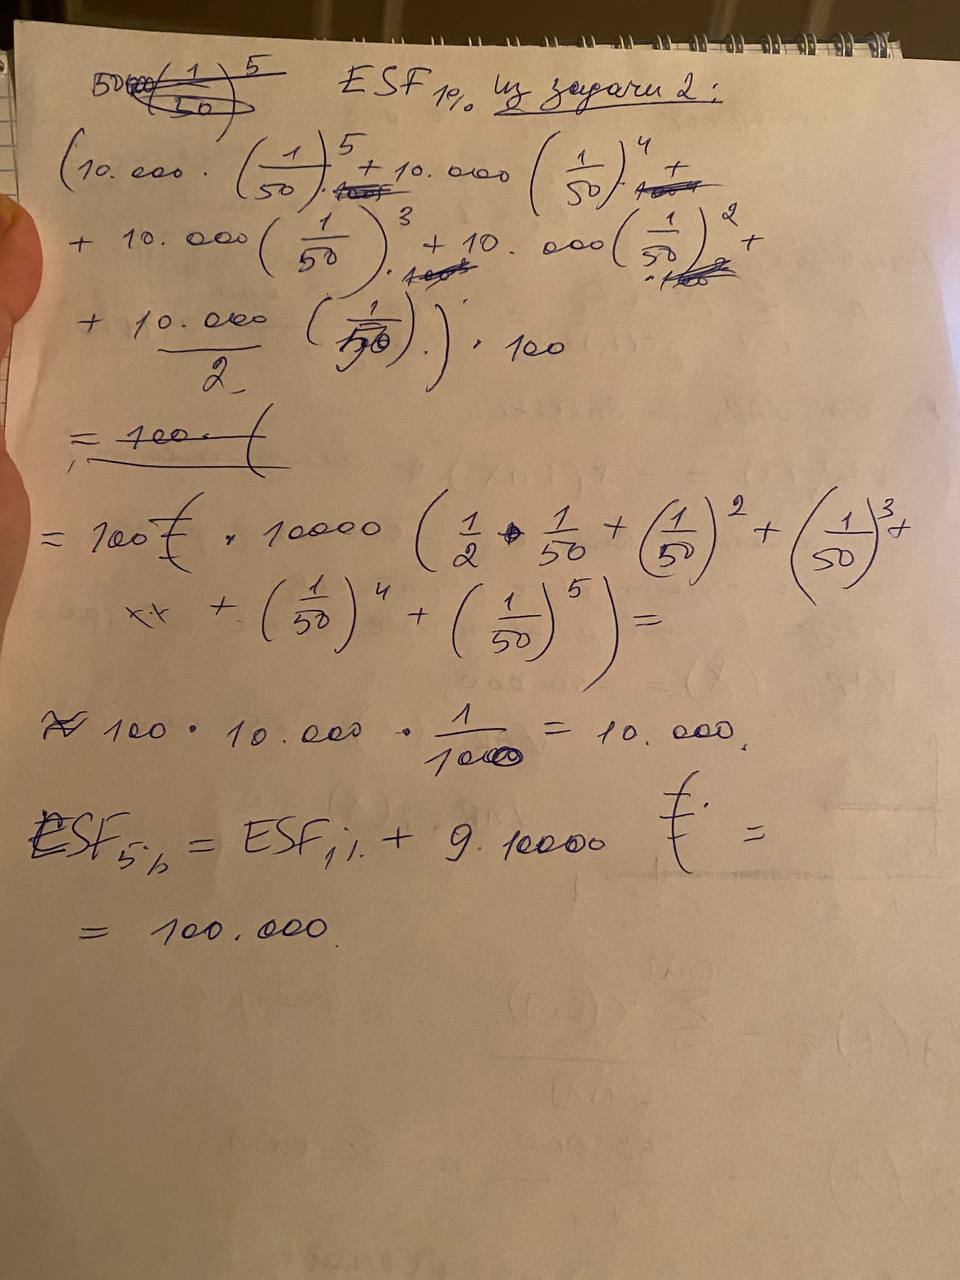 ESF 1% из задачи 2:
(10.000 · (1/50)^5 + 10.000 (1/50)^4 +
+ 10.000 (1/50)^3 + 10.000 (1/50)^2 +
+ 10.000/2 (1/50)) · 100
= 100 · (
= 100 £ · 10000 (1/2 · 1/50 + (1/50)^2 + (1/50)^3 +
+ (1/50)^4 + (1/50)^5) =
≈ 100 · 10.000 · 1/100 = 10.000.
ESF 5% = ESF 1% + 9·10000 £ =
= 100.000.